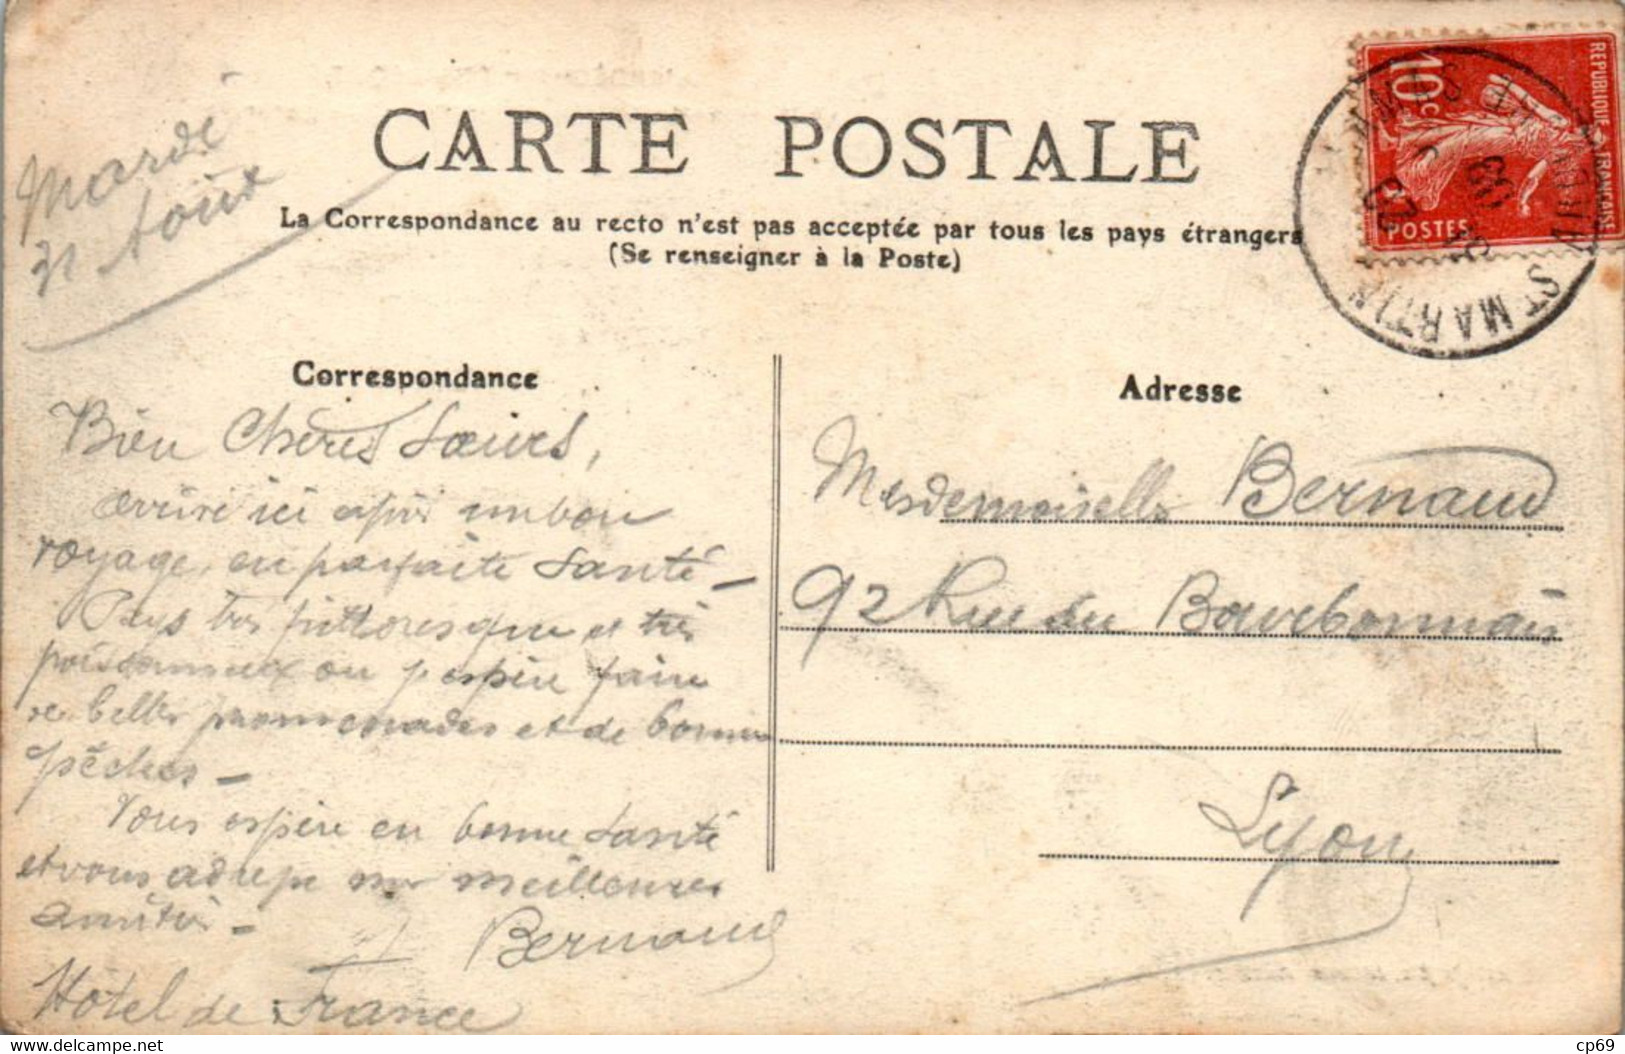 CARTE POSTALE
La Correspondance au recto n'est pas acceptée par tous les pays étrangers
(Se renseigner à la Poste)
Mardi
31 Août
REPUBLIQUE FRANÇAISE
10c
POSTES
ST MARTIN
Correspondance
Bien Chères Sœurs,
arrivé ici après un bon
voyage, en parfaite santé -
Pays très pittoresque et très
poissonneux ou j'espère faire
de belles promenades et de bonnes
pêches -
Vous espère en bonne santé
et vous adresse mes meilleures
amitiés -
Bernaud
Hôtel de France
Adresse
Mesdemoiselles Bernaud
92 Rue du Bourbonnais
Lyon
cp69
www.delcampe.net